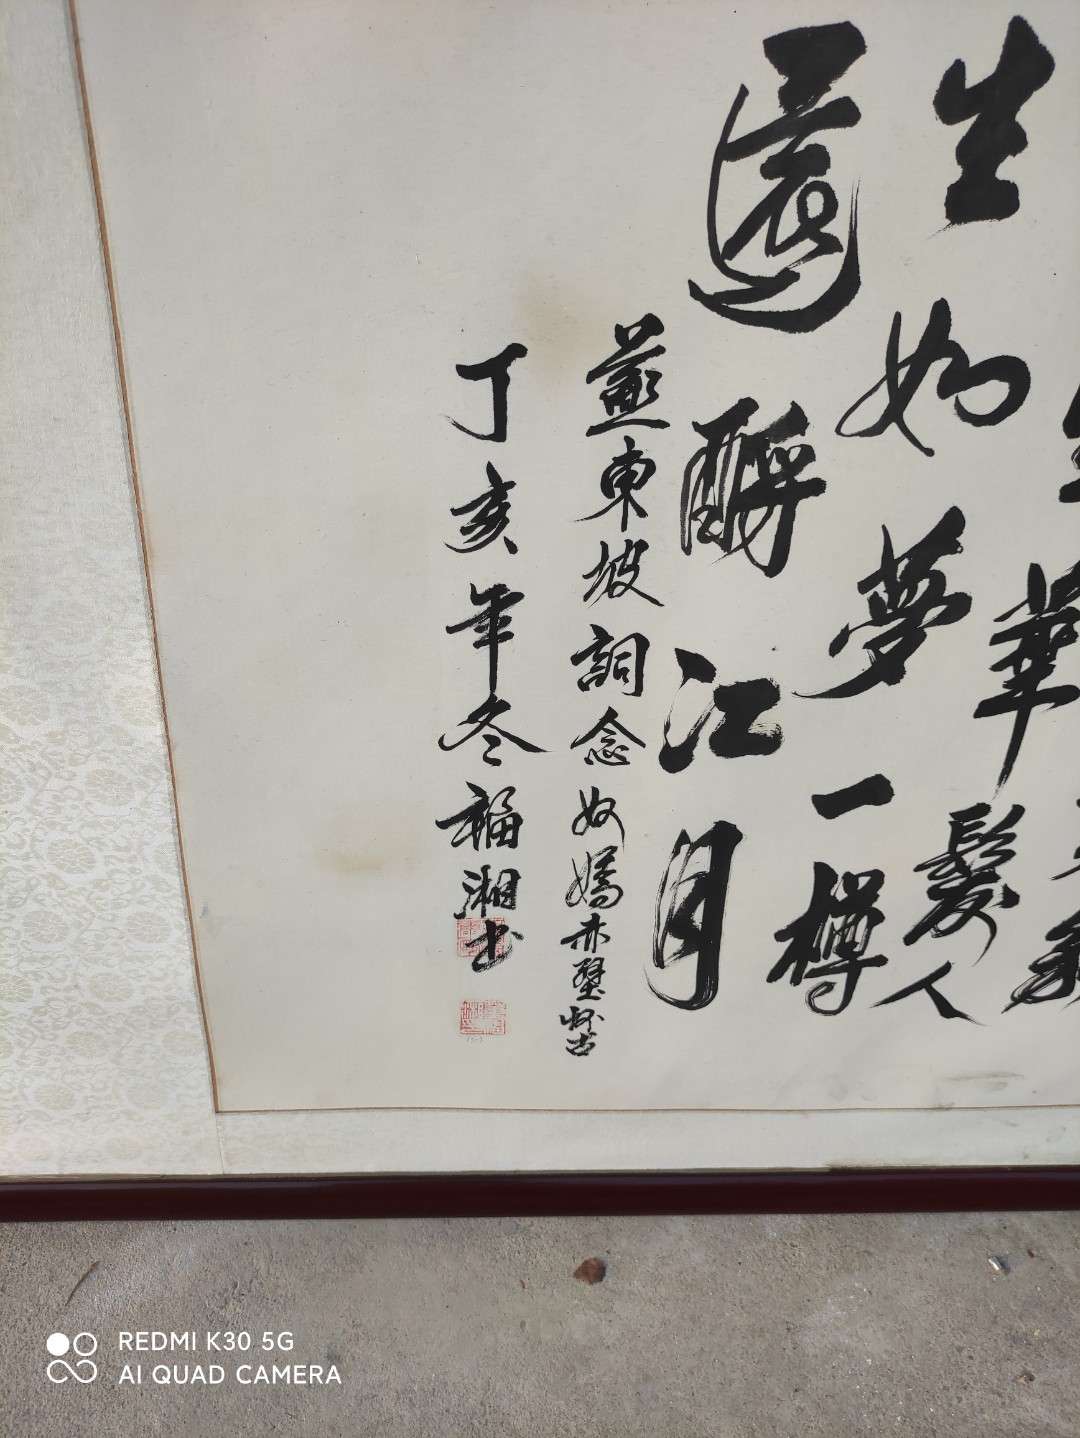 生華髮人
生如夢一樽
還酹江月
蘇東坡詞念奴嬌赤壁懷古
丁亥年冬福湘书
REDMI K30 5G
AI QUAD CAMERA